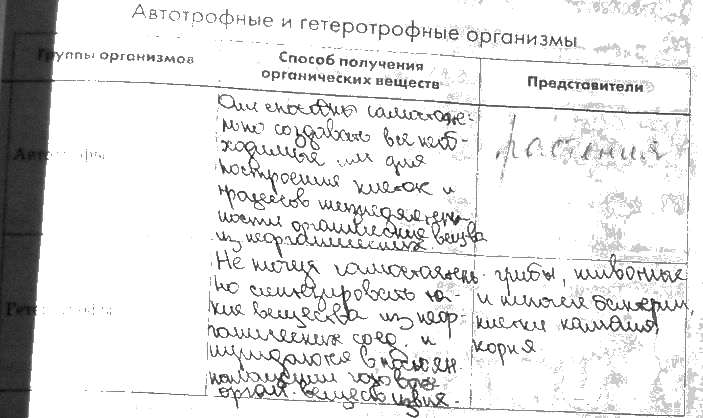 Автотрофные и гетеротрофные организмы
Группы организмов
Способ получения
органических веществ
Представители
Автотрофы
Они способны самостояте-
льно создавать все необ-
ходимые им для
построения клеток и
процессов жизнедеятель-
ности органические вещва
из неорганических.
растения
Гетеротрофы
Не могут самостоятель-
но синтезировать та-
кие вещества из неор-
ганических соед. и
нуждаются в
орган. веществ
грибы, животные
и многие бактерии,
клетки камбия,
корня